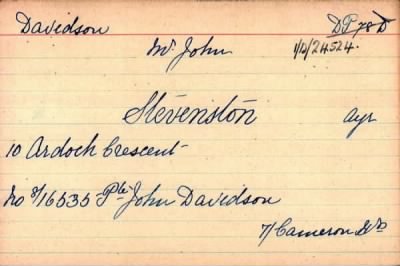 Davidson DP 78 D
Mr. John 1/D/24524.
Stevenston Ayr
10 Ardoch Crescent
No S/16535 Pte John Davidson
7/Cameron Hrs